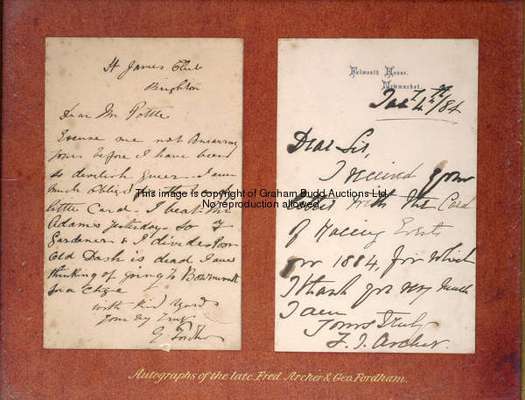 St James Club
Brighton
Dear Mr Pottle
Excuse me not answering
yours before I have been
so devilish queer - I am
much obliged for the
little Card. I beat
Adams yesterday. So
Gardener & I divides
Old Dash is dead I am
thinking of going to
Sea
with kind
yours very truly
G Fordham
Falmouth House,
Newmarket.
Jan 4th/84
Dear Sir,
I received your
letter with the Card
of Racing Events
for 1884, for which
I thank you very much
I am
Yours truly
F. J. Archer
This image is copyright of Graham Budd Auctions Ltd
No reproduction allowed.
Autographs of the late Fred. Archer & Geo. Fordham.